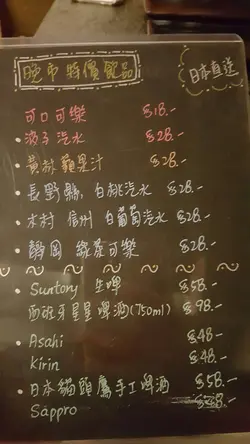 晚市 特價飲品
日本直送
可口可樂 $18.-
• 波子汽水 $28.-
• 黃林蘋果汁 $28.-
• 長野縣 白桃汽水 $28.-
• 木村 信州 白葡萄汽水 $28.-
• 靜岡 綠茶可樂 $28.-
• Suntory 生啤 $58.-
西班牙星星啤酒(750ml) $98.-
• Asahi $48.-
Kirin $48.-
• 日本貓頭鷹手工啤酒 $58.-
Sappro